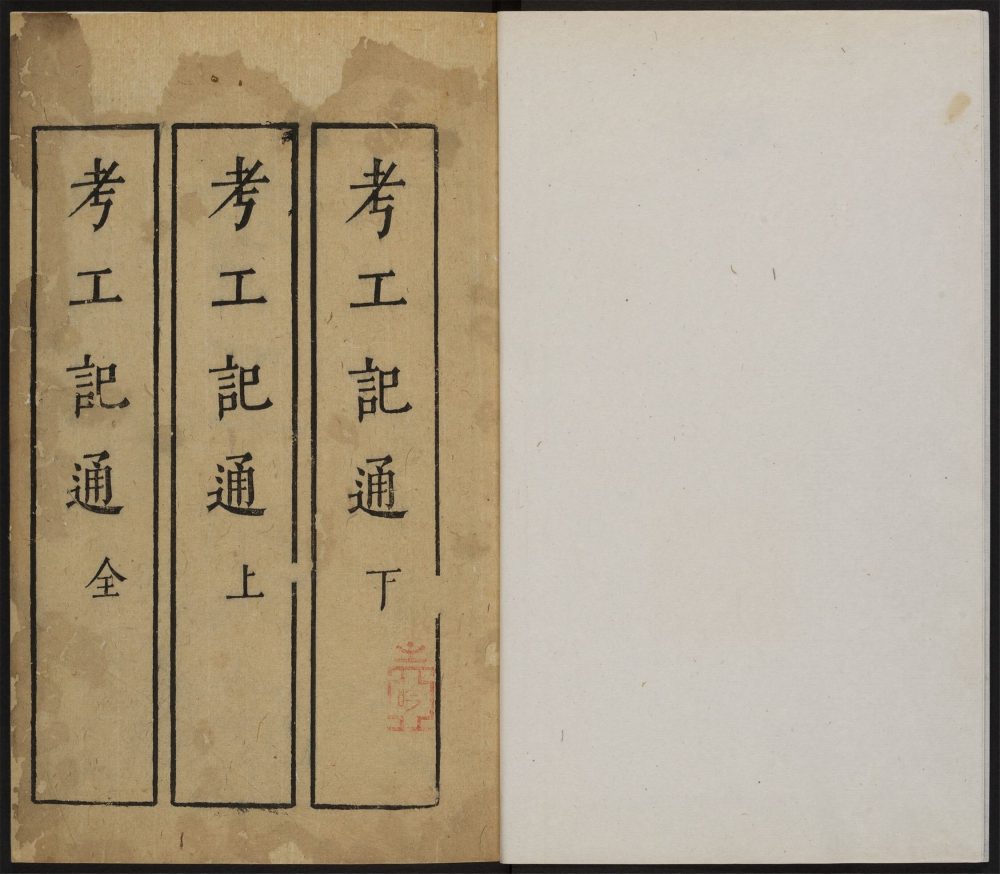 考工記通下
考工記通上
考工記通全